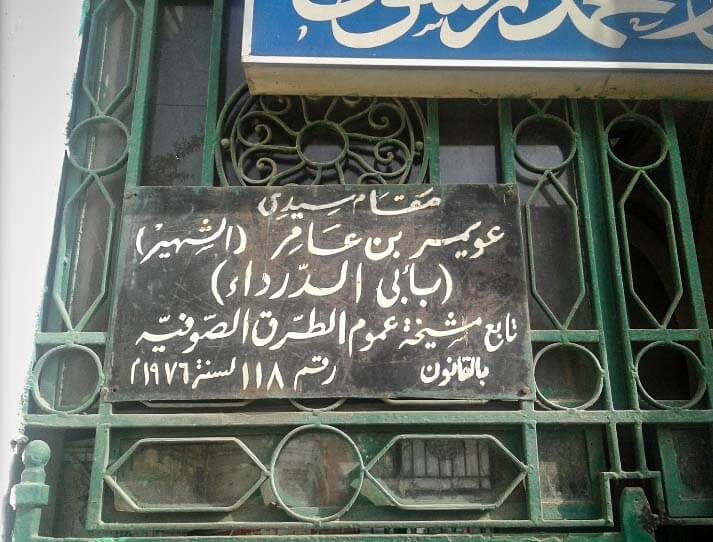 محمد رسول
مقام سيدي
عويمر بن عامر (الشهير)
(بأبى الدرداء)
تابع مشيخة عموم الطرق الصوفيه
بالقانون رقم ١١٨ لسنة ١٩٧٦م